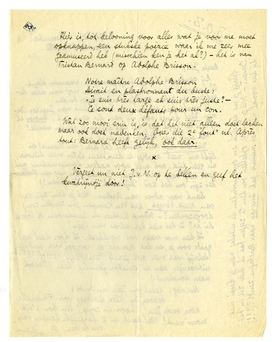 Hier is, tot belooning voor alles wat je voor me moet
opknappen, een stukske poëzie waar ik me zeer mee
geamuseerd heb (misschien ken je het al?) – het is van
Tristan Bernard op Adolphe Brisson.
Notre maître Adolphe Brisson
Disait en plastronnant du buste:
"Je suis très large et suis très juste!" –
Ce sont deux défauts pour un con.
Wat zoo mooi erin is, is dat het niet alleen doet lachen
maar ook doet nadenken, over die 2e fout nl. Après
tout: Bernard heeft gelijk, ook daar.
x
Vergeet nu niet J.v.N. op te bellen en geef het
door!